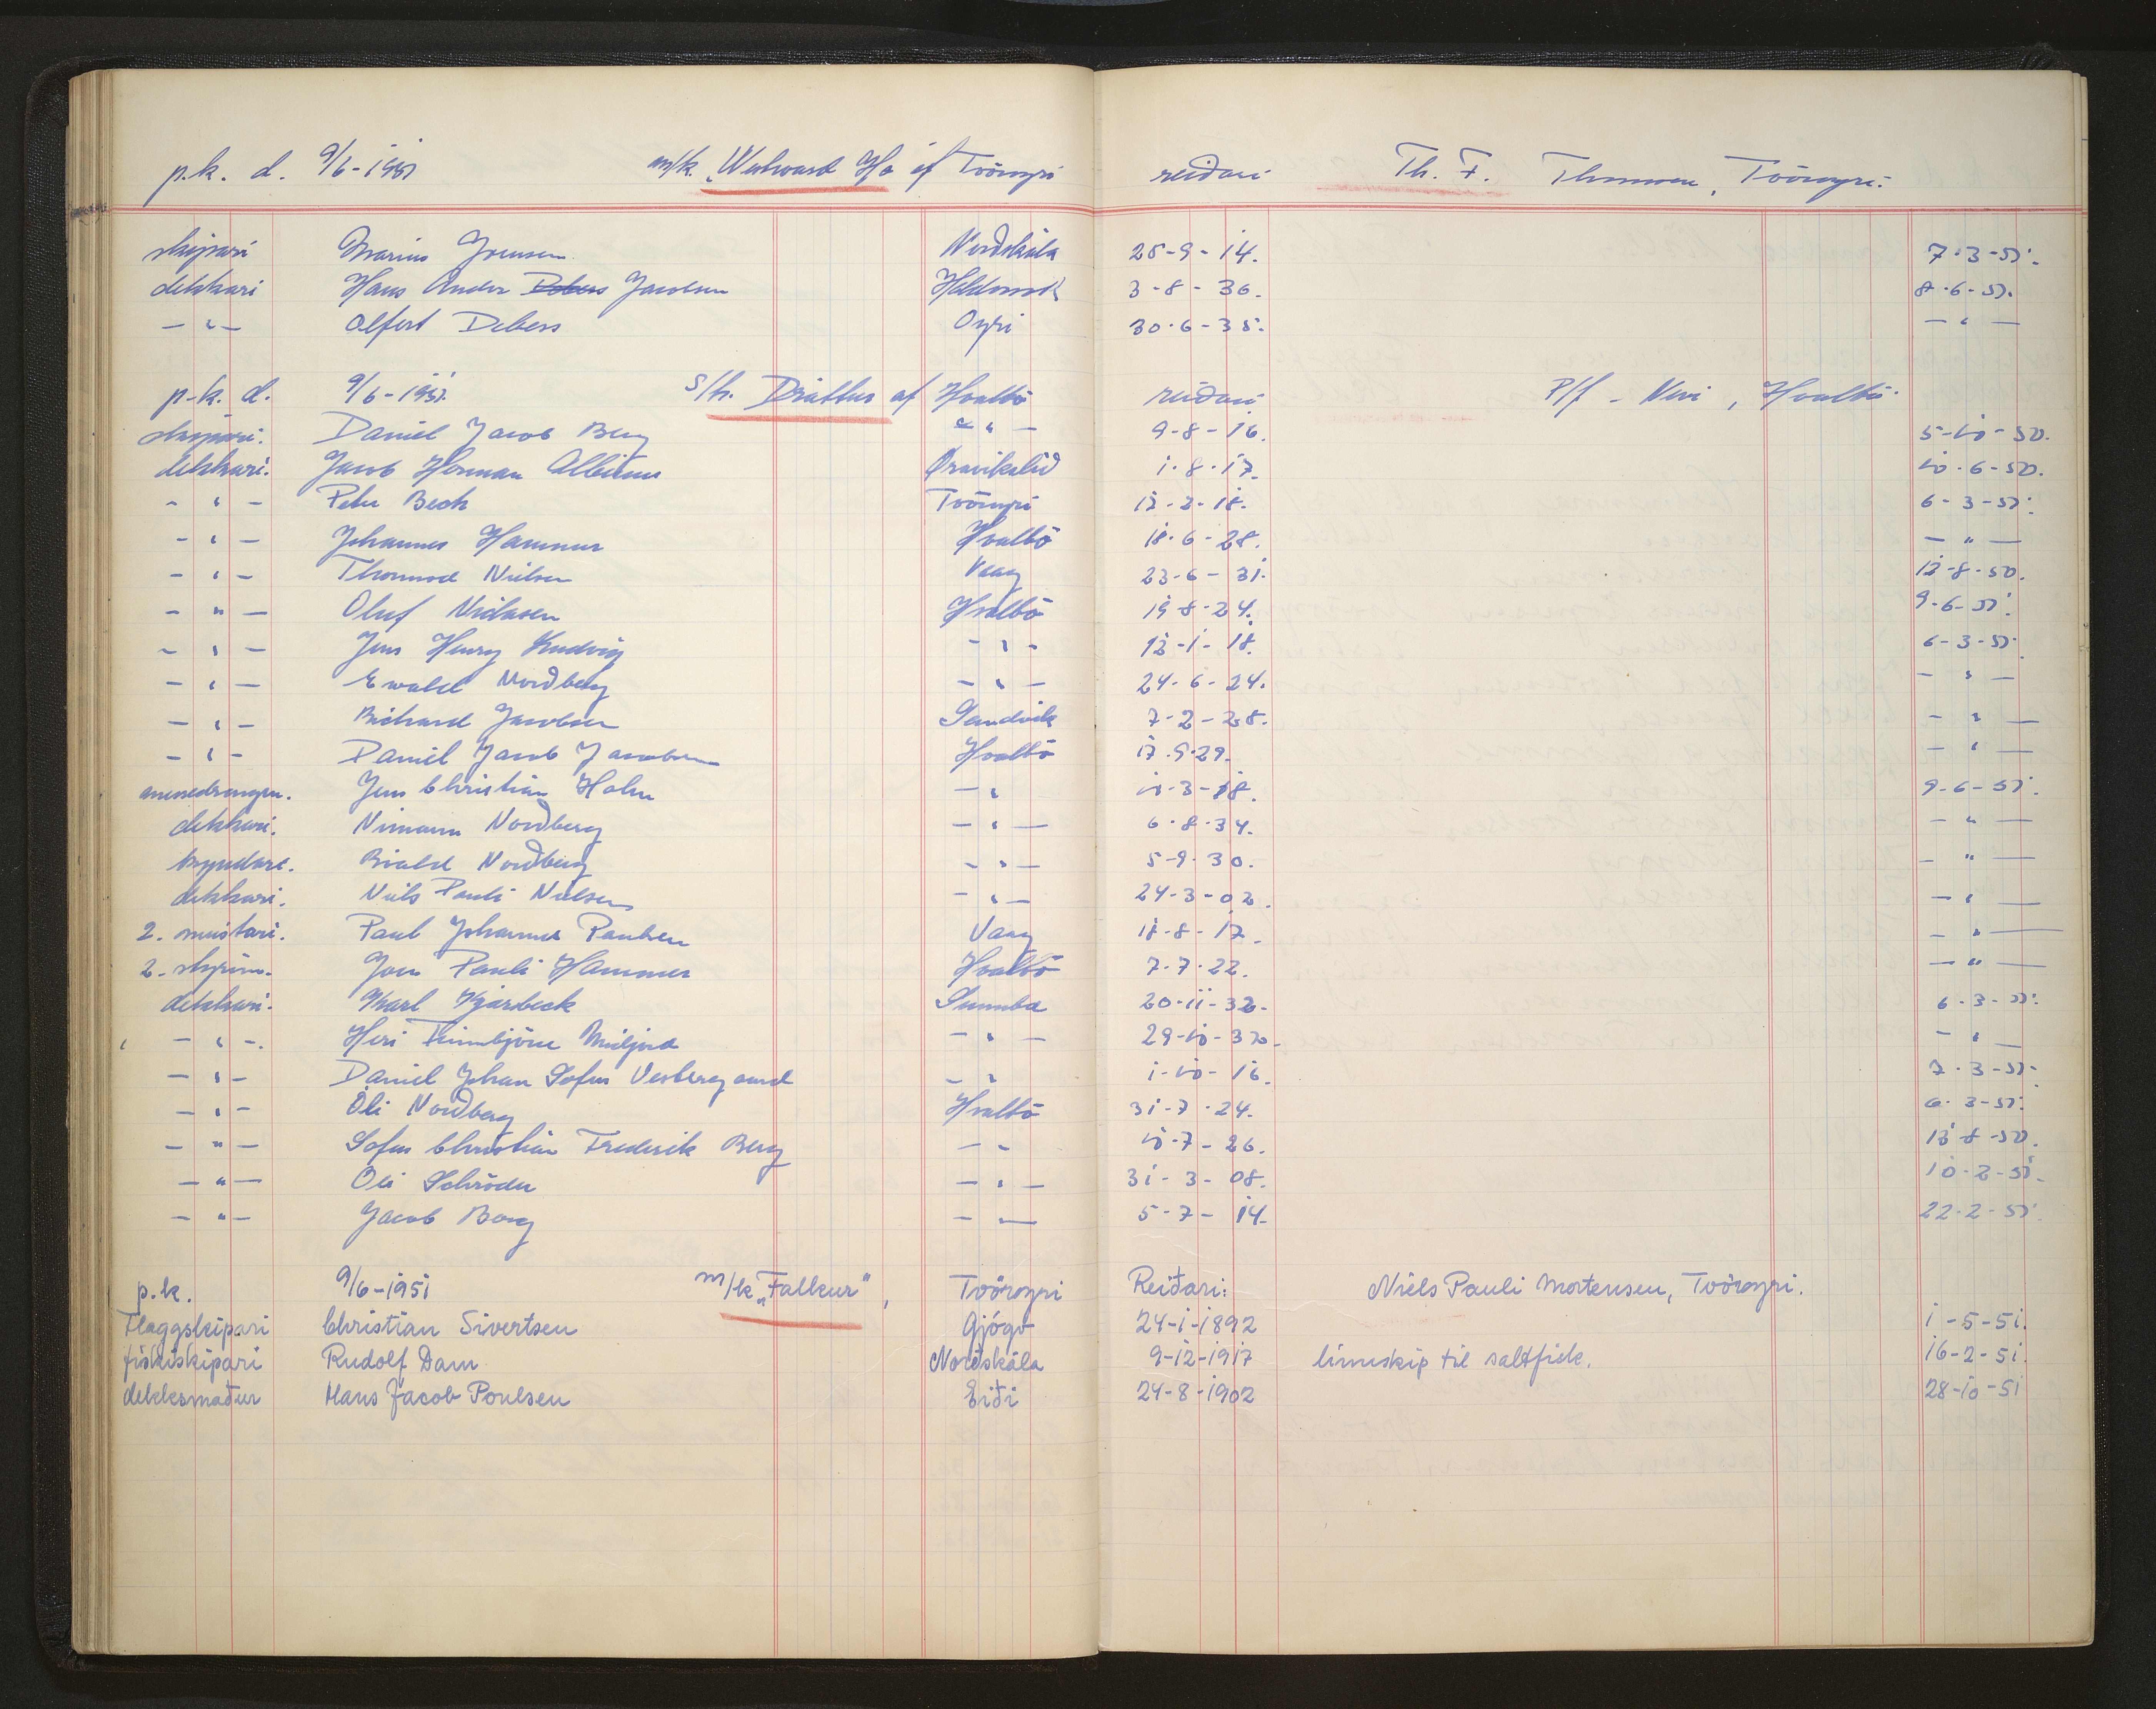 p.k. d. 9/6-1951 m/k. „Westward Ho af Tvöroyri reiðari Th. F. Thomsen, Tvöroyri.
skipari Marius Joensen Norðskála 28-9-14. 7-3-51.
dekkari Hans Andor Debess Jacobsen Haldorsvik 3-8-36. 8-6-51.
— " — Alfert Debess Oyri 30-6-35. — " —
p.k. d. 9/6-1951. S/k. Drättur af Hvalbö reiðari P/f - Nevi, Hvalbö
skipari. Daniel Jacob Berg — " — 9-8-16. 5-10-50.
dekkari. Jacob Herman Albinus Øravikslið 1-8-17. 10-6-50.
- " - Peter Beck Tvöroyri 12-2-18. 6-3-51.
- " - Johannes Hammer Hvalbö 18-6-28. — " —
- " - Thormod Nielsen Vaag 23-6-31. 12-8-50.
- " — Oluf Niclasen Hvalbö 19-8-24. 9-6-51.
- " - Jens Henry Ludvig - " - 12-1-18. 6-3-51.
- " - Ewald Nordberg — " — 24-6-24. — " —
- " - Richard Jacobsen Sandvik 7-2-28. — " —
- " - Daniel Jacob Jacobsen Hvalbö 17-9-29. — " —
messedrongur. Jens Christian Holm — " 10-3-18. 9-6-51.
dekkari. Nimann Nordberg — " — 6-8-34. — " —
kyndari. Nordberg — " — 5-9-30. — " —
dekkari. Niels Pauli Nielsen — " — 24-3-02. — " —
2. meistari. Paul Johannes Poulsen Vaag 18-8-17. — " —
2. stýrim. Joen Pauli Hammer Hvalbö 7-7-22. — " —
dekkari. Karl Kjærbeck Sumba 20-11-32. 6-3-51.
- " -. Heri Finnbjörn — " — 29-10-30. — " —
- " - Daniel Johan Sofus Vesbergaard — " 1-10-16. 7-3-51.
- " - Óli Nordberg Hvalbö 31-7-24. 6-3-51.
— " — Sofus Christian Frederik Berg — " 10-7-26. 12-8-50.
— " — Oli Schröder — " — 31-3-08. 10-2-51.
— " — Jacob Berg — " — 5-7-14. 22-2-51.
p.k. 9/6-1951 m/k „Falkur", Tvöroyri Reiðari: Niels Pauli Mortensen, Tvöroyri.
Flaggskipari Christian Sivertsen Gjógv 24-1-1892 1-5-51.
fiskiskipari Rudolf Dam Norðskála 9-12-1917 linuskip til saltfisk. 16-2-51.
dekksmaður Hans Jacob Poulsen Eiði 24-8-1902 28-10-51